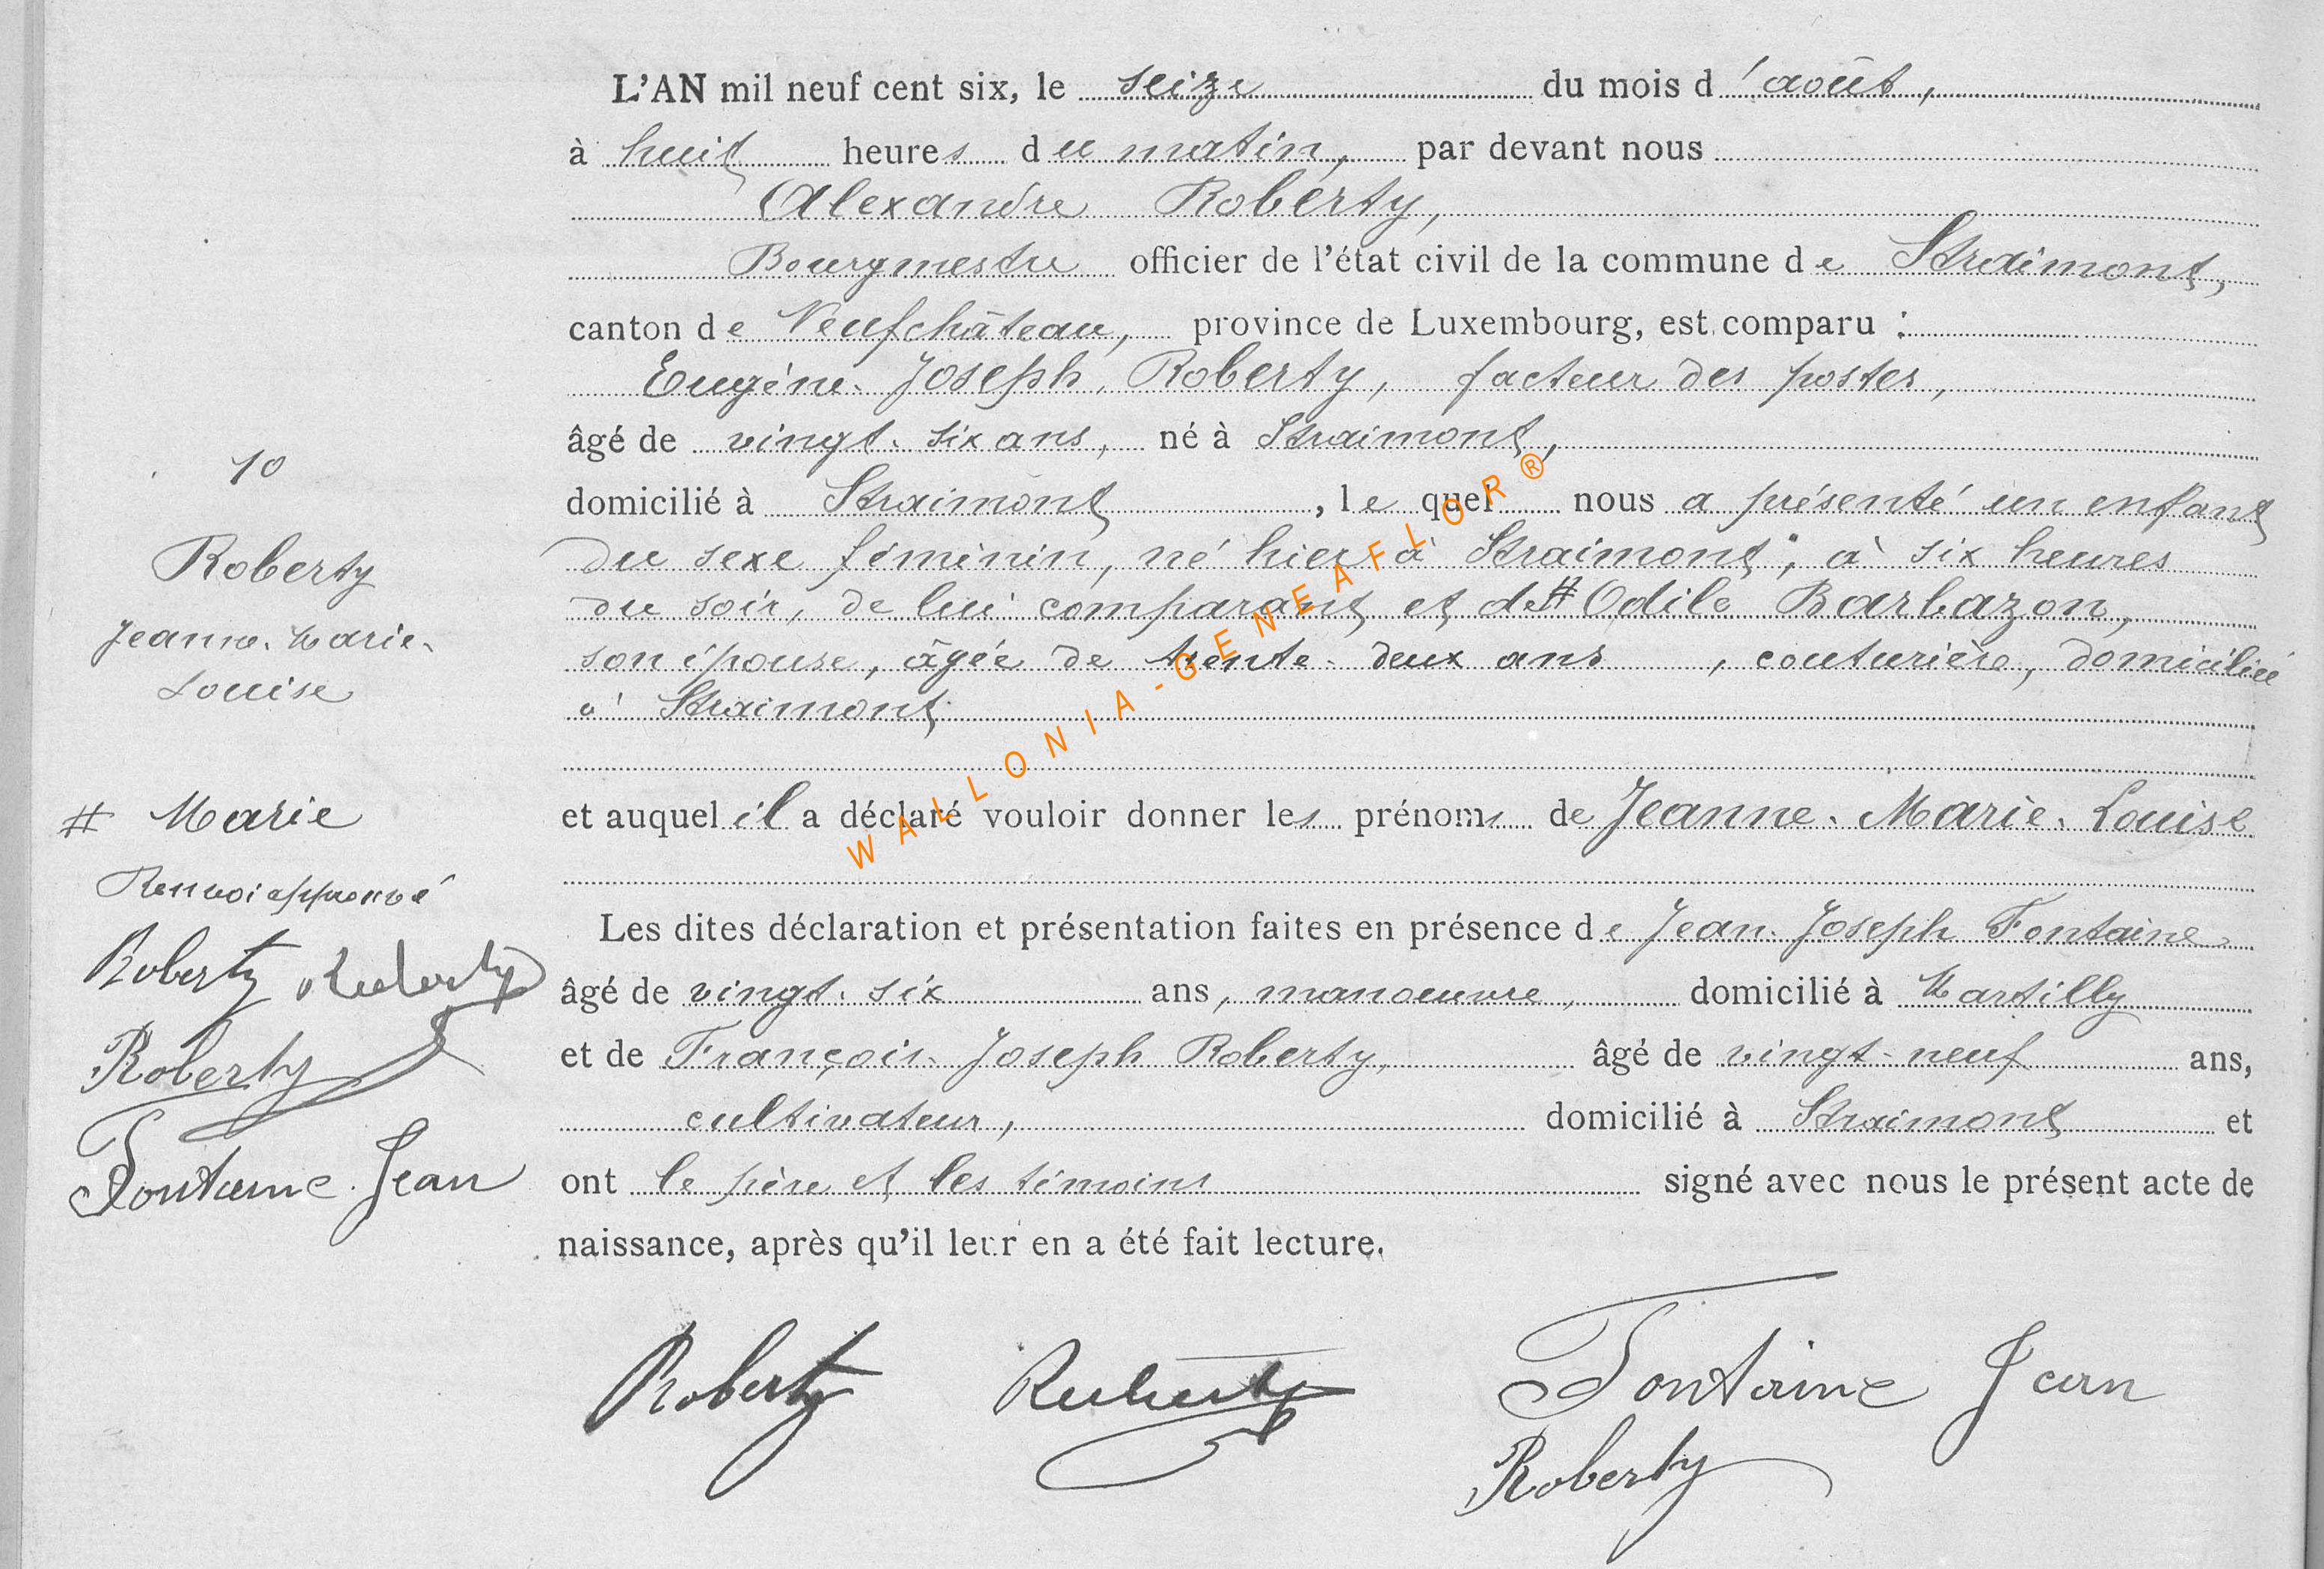 L'AN mil neuf cent six, le seize du mois d'août,
à huit heures du matin, par devant nous
Alexandre Roberty,
Bourgmestre officier de l'état civil de la commune de Straimont,
canton de Neufchâteau, province de Luxembourg, est comparu :
Eugène-Joseph Roberty, facteur des postes,
âgé de vingt-six ans, né à Straimont,
domicilié à Straimont, lequel nous a présenté un enfant
du sexe féminin, né hier à Straimont, à six heures
du soir, de lui comparant et de # Odile Barbazon,
son épouse, âgée de trente-deux ans, couturière, domiciliée
à Straimont
et auquel il a déclaré vouloir donner les prénoms de Jeanne-Marie-Louise
Les dites déclaration et présentation faites en présence de Jean-Joseph Fontaine
âgé de vingt-six ans, manoeuvre, domicilié à Martilly
et de François-Joseph Roberty, âgé de vingt-neuf ans,
cultivateur, domicilié à Straimont et
ont le père et les témoins signé avec nous le présent acte de
naissance, après qu'il leur en a été fait lecture.
Roberty Roberty Fontaine Jean
Roberty
10
Roberty
Jeanne-Marie-
Louise
# Marie
Renvoi approuvé
Roberty Roberty
Roberty
Fontaine Jean
WALLONIA-GENEAFLOR®